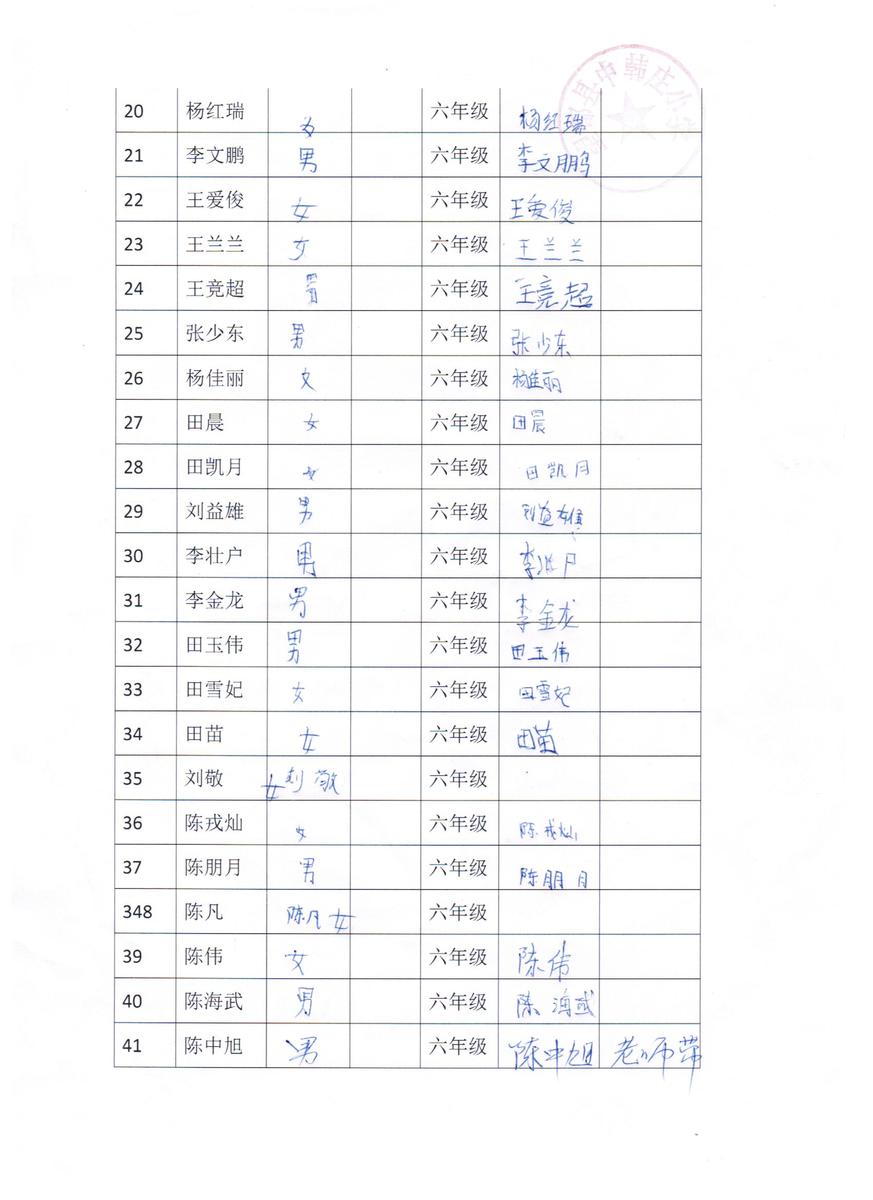 县中韩庄小学
20 杨红瑞 女 六年级 杨红瑞
21 李文鹏 男 六年级 李文朋鸟
22 王爱俊 女 六年级 王爱俊
23 王兰兰 女 六年级 王兰兰
24 王竞超 男 六年级 王竞超
25 张少东 男 六年级 张少东
26 杨佳丽 女 六年级 杨佳丽
27 田晨 女 六年级 田晨
28 田凯月 女 六年级 田凯月
29 刘益雄 男 六年级 刘益雄
30 李壮户 男 六年级 李壮户
31 李金龙 男 六年级 李金龙
32 田玉伟 男 六年级 田玉伟
33 田雪妃 女 六年级 田雪妃
34 田苗 女 六年级 田苗
35 刘敬 女 刘敬 六年级
36 陈戎灿 女 六年级 陈戎灿
37 陈朋月 男 六年级 陈朋月
348 陈凡 陈凡 女 六年级
39 陈伟 女 六年级 陈伟
40 陈海武 男 六年级 陈海武
41 陈中旭 男 六年级 陈中旭 老师带